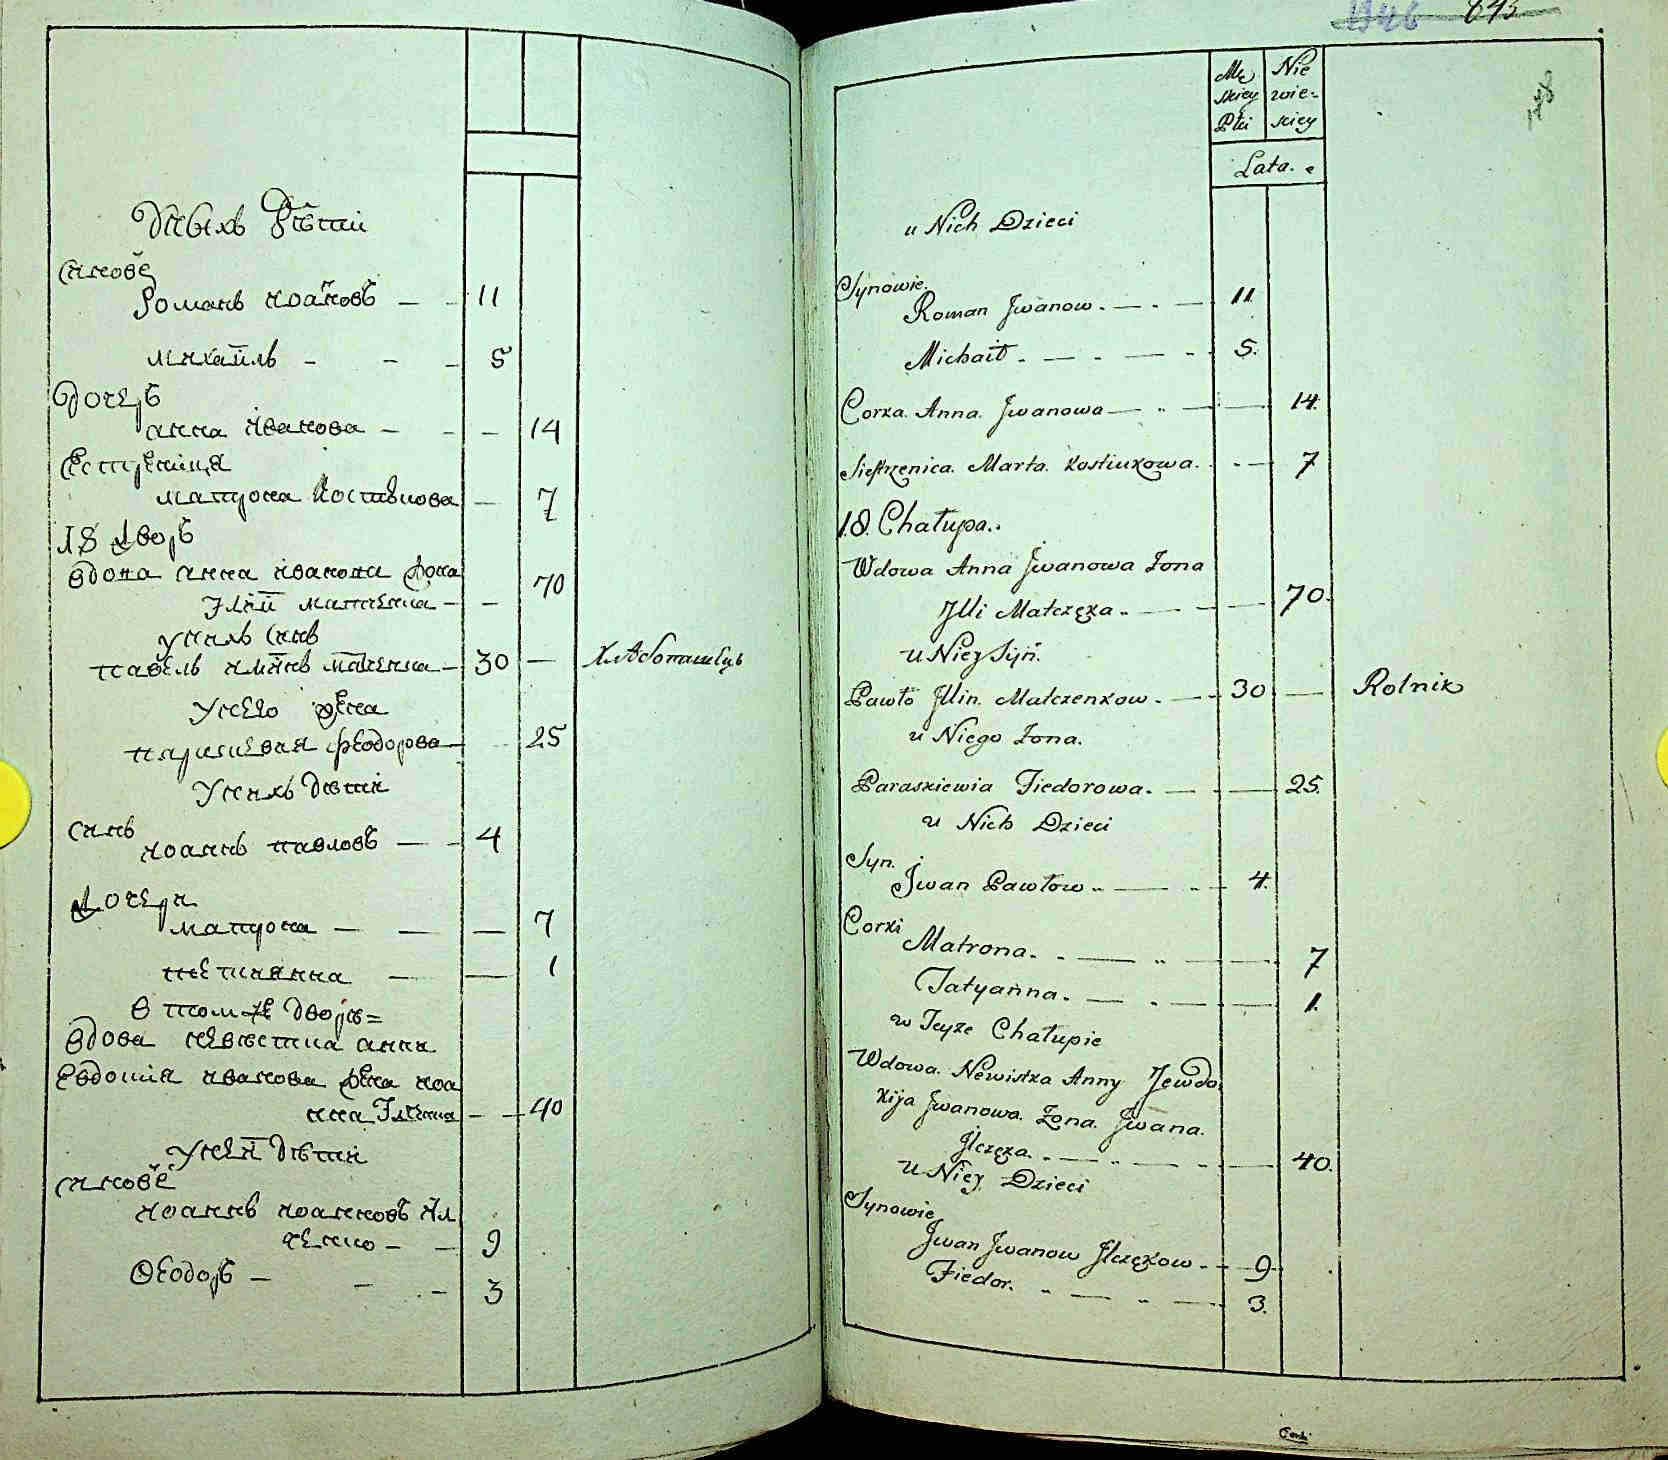 Синове
Романъ Иоановъ — — 11
Михаилъ — — — 5
Дочеръ
Анна Иванова — — — 14
Сестреница
Матрона Костюкова — 7
18 Дворъ
Вдова Анна Иванова жона
Илїи Матченка — — 70
У неи Синъ
Павелъ Илїинъ Матченка — 30 — Хлѣбопашецъ
У него жена
Параскевия Феодорова — 25
У нихъ дѣти
Синъ
Иоаннъ Павловъ — — 4
Дочери
Матрона — — — 7
Тетиянна — — 1
В том же дворѣ =
Вдова невѣстка Анни
Евдокия Иванова жена Иоа
нна Ілченка — — 40
У неи дѣти
Синове
Иоаннъ Иоанновъ Ил
ченко — — 9
Ѳеодоръ — — — 3
1346 643
148
Mę Nie
skiey wie-
Płci skiey
Lata.
u Nich Dzieci
Synowie.
Roman Jwanow. — . — 11.
Michaił. — . — 5.
Corka. Anna. Jwanowa — " — — 14.
Siestrzenica. Marta. Kostiukowa. . — 7
18. Chałupa..
Wdowa Anna Jwanowa Zona
Jlli Matczęka. . — — 70.
u Niey Syn.
Pawło Jllin. Matczenkow. — . 30 — Rolnik
u Niego Zona.
Paraskiewia Fiedorowa. — — 25.
u Nich Dzieci
Syn.
Jwan Pawłow .. — " — 4.
Corki
Matrona. . — " — — 7
Tatyanna. — . — — 1.
w Teyże Chałupie
Wdowa. Newistka Anny Jewdo
kija Jwanowa. Zona. Jwana.
Jlczęka. . — " — — 40.
u Niey Dzieci
Synowie
Jwan Jwanow Jlczękow. - 9
Fiedor. " — " — 3.
Corki